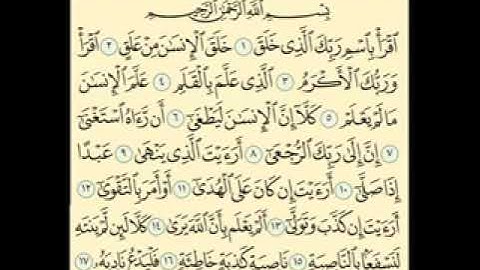 بِسْمِ ٱللَّهِ ٱلرَّحْمَٰنِ ٱلرَّحِيمِ
ٱقْرَأْ بِٱسْمِ رَبِّكَ ٱلَّذِى خَلَقَ ١ خَلَقَ ٱلْإِنسَٰنَ مِنْ عَلَقٍ ٢ ٱقْرَأْ
وَرَبُّكَ ٱلْأَكْرَمُ ٣ ٱلَّذِى عَلَّمَ بِٱلْقَلَمِ ٤ عَلَّمَ ٱلْإِنسَٰنَ
مَا لَمْ يَعْلَمْ ٥ كَلَّآ إِنَّ ٱلْإِنسَٰنَ لَيَطْغَىٰٓ ٦ أَن رَّءَاهُ ٱسْتَغْنَىٰٓ
٧ إِنَّ إِلَىٰ رَبِّكَ ٱلرُّجْعَىٰٓ ٨ أَرَءَيْتَ ٱلَّذِى يَنْهَىٰ ٩ عَبْدًا
إِذَا صَلَّىٰٓ ١٠ أَرَءَيْتَ إِن كَانَ عَلَى ٱلْهُدَىٰٓ ١١ أَوْ أَمَرَ بِٱلتَّقْوَىٰٓ ١٢
أَرَءَيْتَ إِن كَذَّبَ وَتَوَلَّىٰٓ ١٣ أَلَمْ يَعْلَم بِأَنَّ ٱللَّهَ يَرَىٰ ١٤ كَلَّا لَئِن لَّمْ يَنتَهِ
لَنَسْفَعًۢا بِٱلنَّاصِيَةِ ١٥ نَاصِيَةٍ كَٰذِبَةٍ خَاطِئَةٍ ١٦ فَلْيَدْعُ نَادِيَهُۥ ١٧